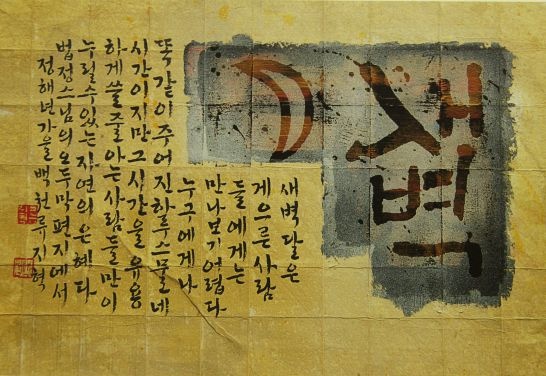 새벽
새벽달은
게으른 사람
들에게는
만나보기 어렵다
누구에게나
똑같이 주어진 하루 스물네
시간이지만 그 시간을 유용
하게 쓸 줄 아는 사람들만이
누릴 수 있는 자연의 은혜다
법정스님의 오두막 편지에서
정해년 가을 백천 류지혁